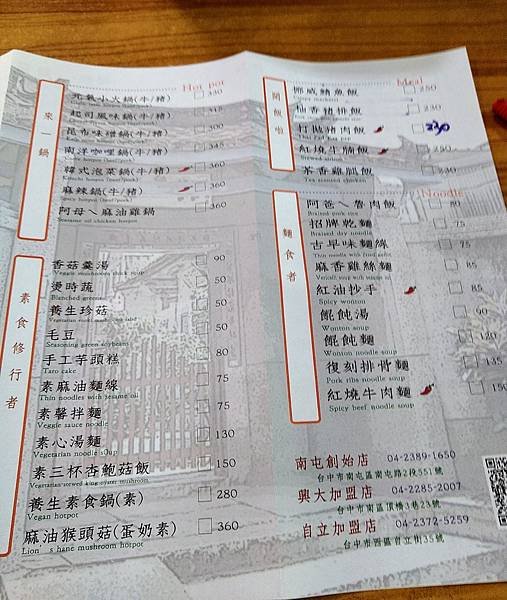 Hot pot
來一鍋
元氣小火鍋(牛/豬) 300
起司風味鍋(牛/豬)
昆布味噌鍋(牛/豬) 300
南洋咖哩鍋(牛/豬) 345
韓式泡菜鍋(牛/豬) 360
麻辣鍋(牛/豬) 360
Spicy hotpot (beef/pork)
阿母ㄟ麻油雞鍋 360
Sesame oil chicken hotpot
素食修行者
香菇羹湯 90
Veggie mushroom thick soup
燙時蔬 50
Blanched greens
養生珍菇 50
毛豆 50
Seasoning green soybeans
手工芋頭糕 80
Taro cake
素麻油麵線 75
Thin noodles with sesame oil
素馨拌麵 75
Veggie sauce noodle
素心湯麵 130
Vegetarian noodle soup
素三杯杏鮑菇飯 150
Vegetarian stewed king oyster mushroom
養生素食鍋(素) 280
Vegan hotpot
麻油猴頭菇(蛋奶素) 360
Lion's hane mushroom hotpot
Meal
開飯啦
挪威鯖魚飯 250
仙香豬排飯 230
打拋豬肉飯 230
紅燒牛腩飯 230
茶香雞腿飯 230
Tea-scented chicken
Noodle
麵食者
阿爸ㄟ魯肉飯 80
Braised pork rice
招牌乾麵
Braised dry noodle
古早味麵線 75
麻香雞絲麵 75
紅油抄手 85
Spicy wonton
餛飩湯 90
Wonton soup
餛飩麵 120
Wonton noodle soup
復刻排骨麵 135
Pork ribs noodle soup
紅燒牛肉麵 150
Spicy beef noodle soup
南屯創始店 04-2389-1650
台中市南屯區南屯路2段551號
興大加盟店 04-2285-2007
台中市南區頂橋3巷23號
自立加盟店 04-2372-5259
台中市西區自立街35號